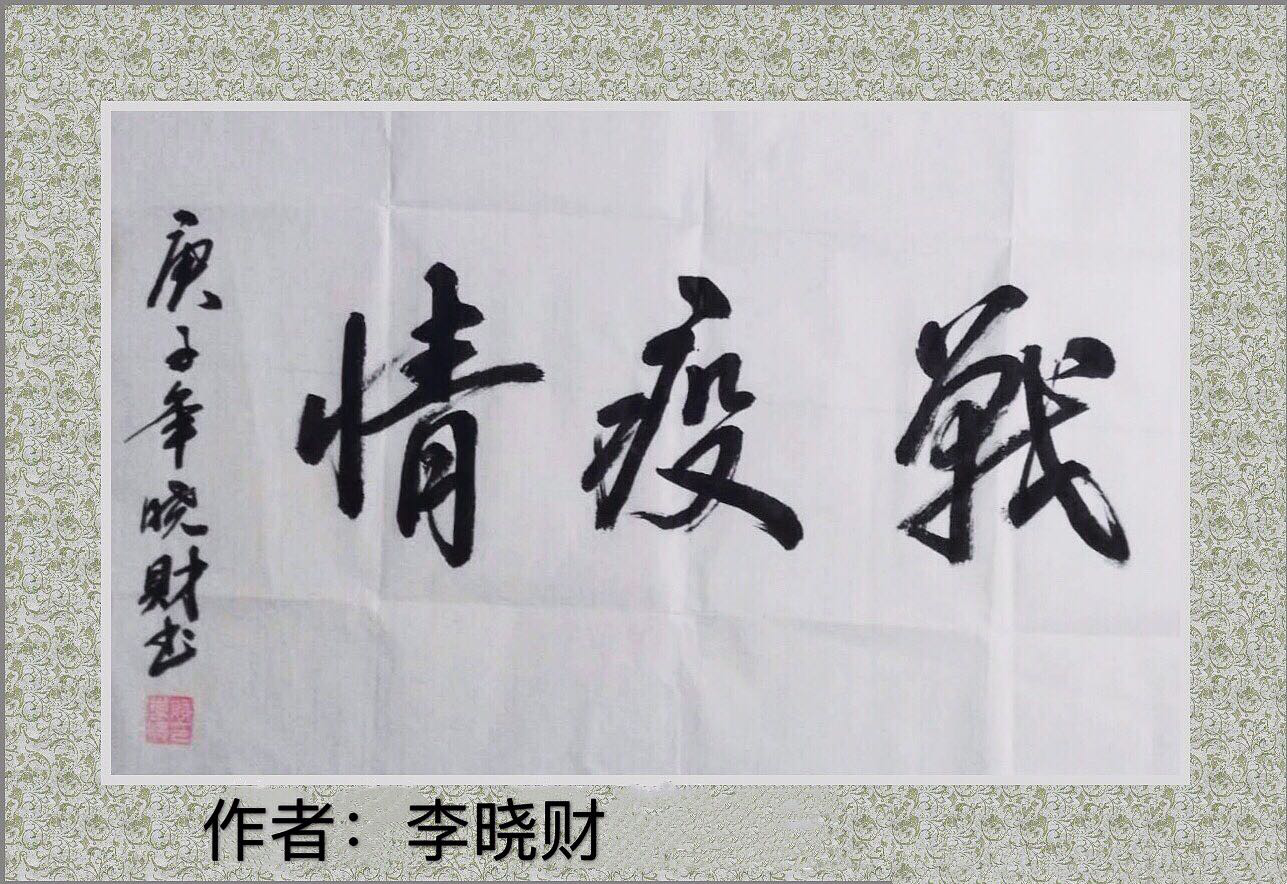 戰疫情
庚子年曉财书
作者：李晓财